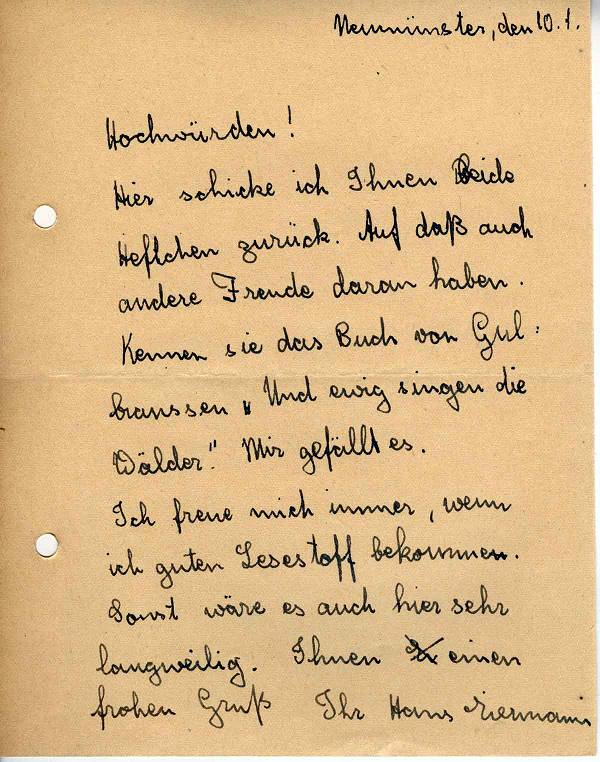 Neumünster, den 10. 1.
Hochwürden!
Hier schicke ich Ihnen Beide
Heftchen zurück. Auf daß auch
andere Freude daran haben.
Kennen sie das Buch von Gul:
branssen „Und ewig singen die
Wälder." Mir gefällt es.
Ich freue mich immer, wenn
ich guten Lesestoff bekommen.
Sonst wäre es auch hier sehr
langweilig. Ihnen einen
frohen Gruß Ihr Hans